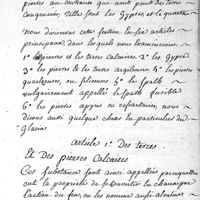 pierres au contraire qui n'ont point de terre
conquerir; telles sont les gypses et le quartz
Nous diviserons cette section en six articles
principaux dans lesquels nous examinerons
1° les pierres et les terres calcaires 2° les gypses
3° les pierres et les terres argileuses 4° les pierres
quartzeuses, ou siliceuses 5° le spath
vulgairement appellé le spath fusible
6° les pierres apyres ou refractaires, nous
dirons aussi quelque chose en particulier du
glaise
article 1er Des terres
Et Des pierres Calcaires
Ces substances sont ainsi appellées parce qu'elles
ont la propriété de se convertir en chaux par
l'action du feu, on les nomme aussi alcalines